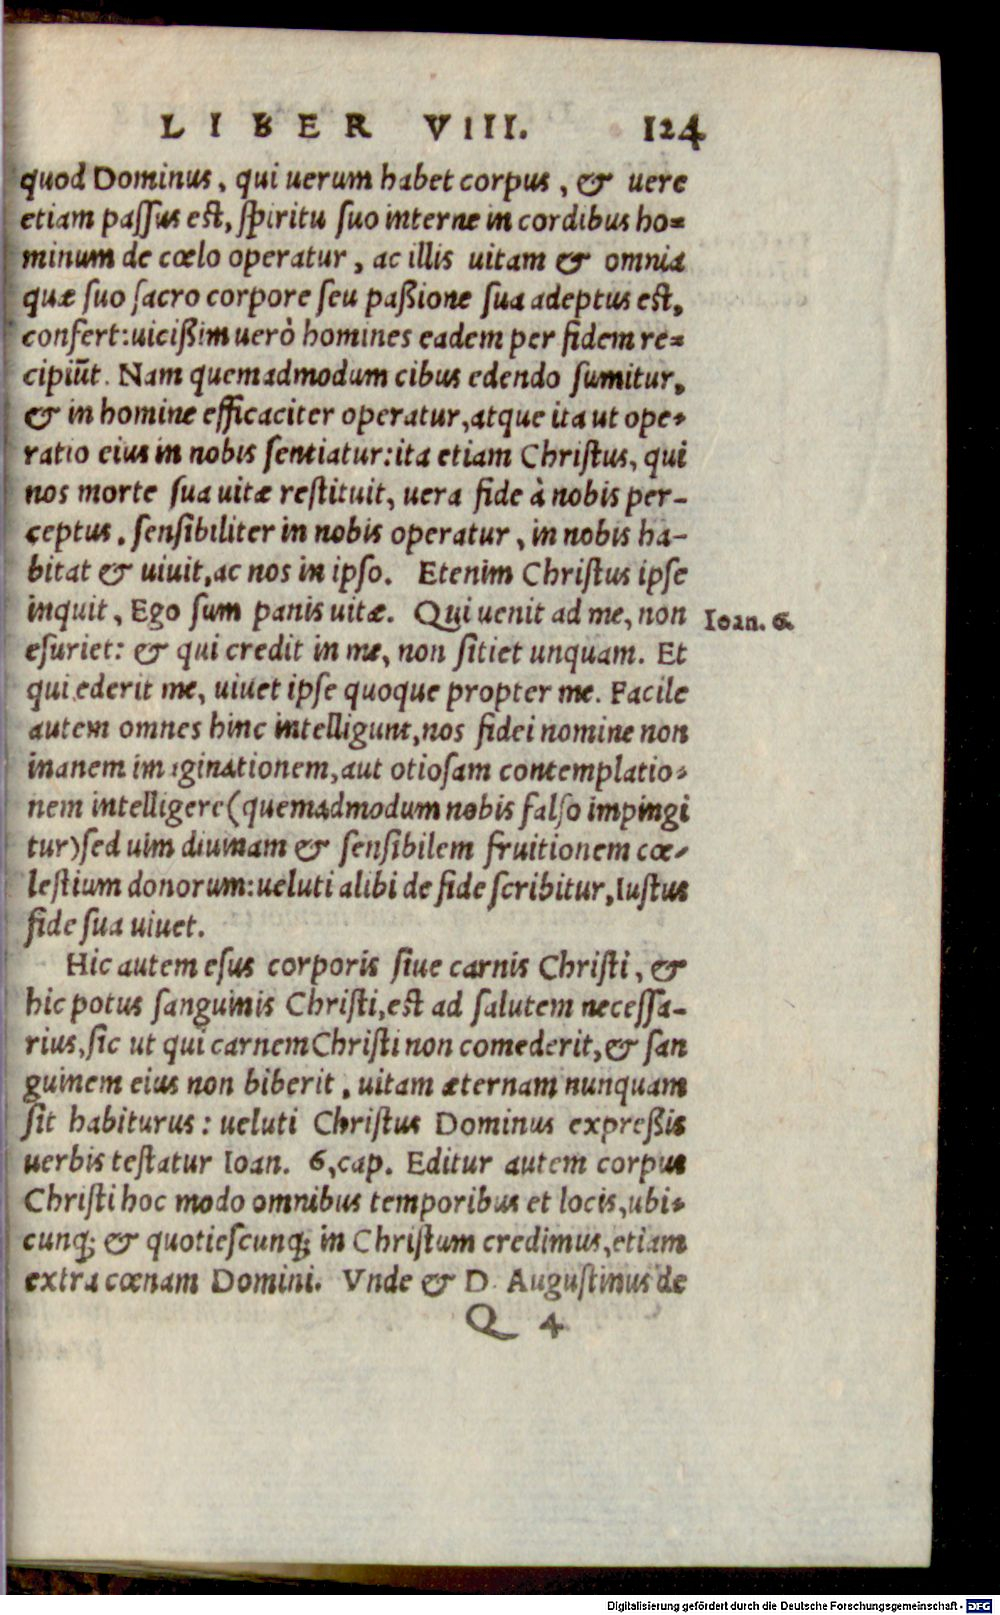 LIBER VIII. 124
quod Dominus, qui uerum habet corpus, & uere
etiam paſſus eſt, ſpiritu ſuo interne in cordibus ho=
minum de cœlo operatur, ac illis uitam & omnia
quæ ſuo ſacro corpore ſeu paßione ſua adeptus eſt,
confert: uicißim uerò homines eadem per fidem re=
cipiūt. Nam quemadmodum cibus edendo ſumitur,
& in homine efficaciter operatur, atque ita ut ope-
ratio eius in nobis ſentiatur: ita etiam Chriſtus, qui
nos morte ſua uitæ reſtituit, uera fide à nobis per-
ceptus, ſenſibiliter in nobis operatur, in nobis ha-
bitat & uiuit, ac nos in ipſo. Etenim Chriſtus ipſe
inquit, Ego ſum panis uitæ. Qui uenit ad me, non
Ioan. 6.
eſuriet: & qui credit in me, non ſitiet unquam. Et
qui ederit me, uiuet ipſe quoque propter me. Facile
autem omnes hinc intelligunt, nos fidei nomine non
inanem imaginationem, aut otioſam contemplatio-
nem intelligere (quemadmodum nobis falſo impingi
tur) ſed uim diuinam & ſenſibilem fruitionem cœ-
leſtium donorum: ueluti alibi de fide ſcribitur, Iuſtus
fide ſua uiuet.
Hic autem eſus corporis ſiue carnis Chriſti, &
hic potus ſanguinis Chriſti, eſt ad ſalutem neceſſa-
rius, ſic ut qui carnem Chriſti non comederit, & ſan
guinem eius non biberit, uitam æternam nunquam
ſit habiturus: ueluti Chriſtus Dominus expreßis
uerbis teſtatur Ioan. 6, cap. Editur autem corpus
Chriſti hoc modo omnibus temporibus et locis, ubi-
cunq; & quotieſcunq; in Chriſtum credimus, etiam
extra cœnam Domini. Vnde & D. Auguſtinus de
Q 4
Digitalisierung gefördert durch die Deutsche Forschungsgemeinschaft - DFG